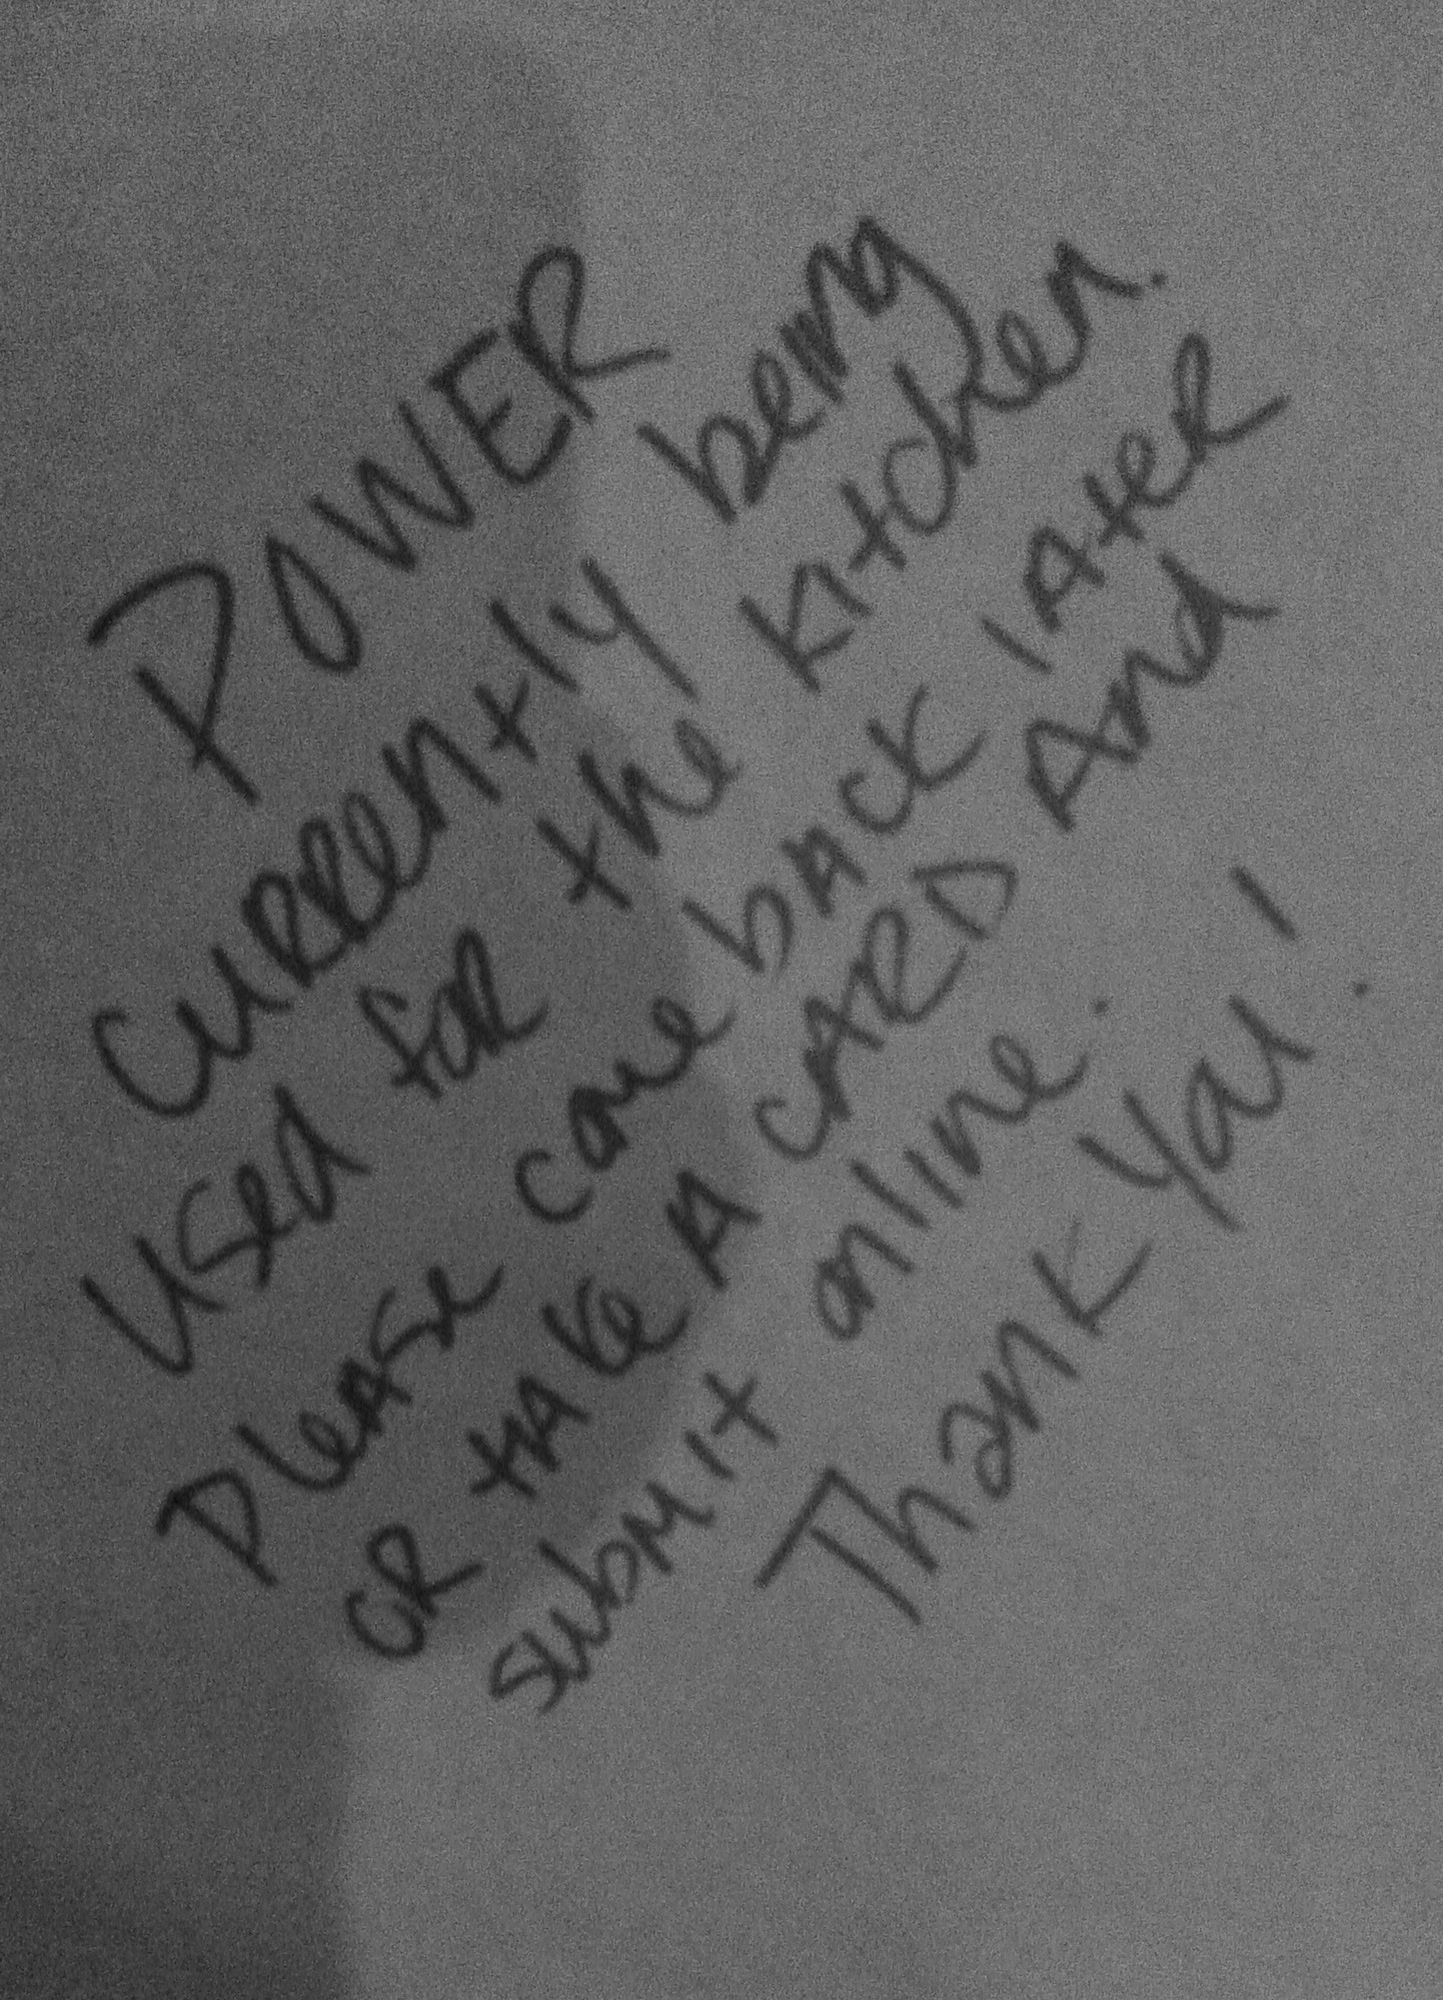 POWER
currently being
used for the kitchen.
Please come back later
or take a card and
submit online.
Thank you!